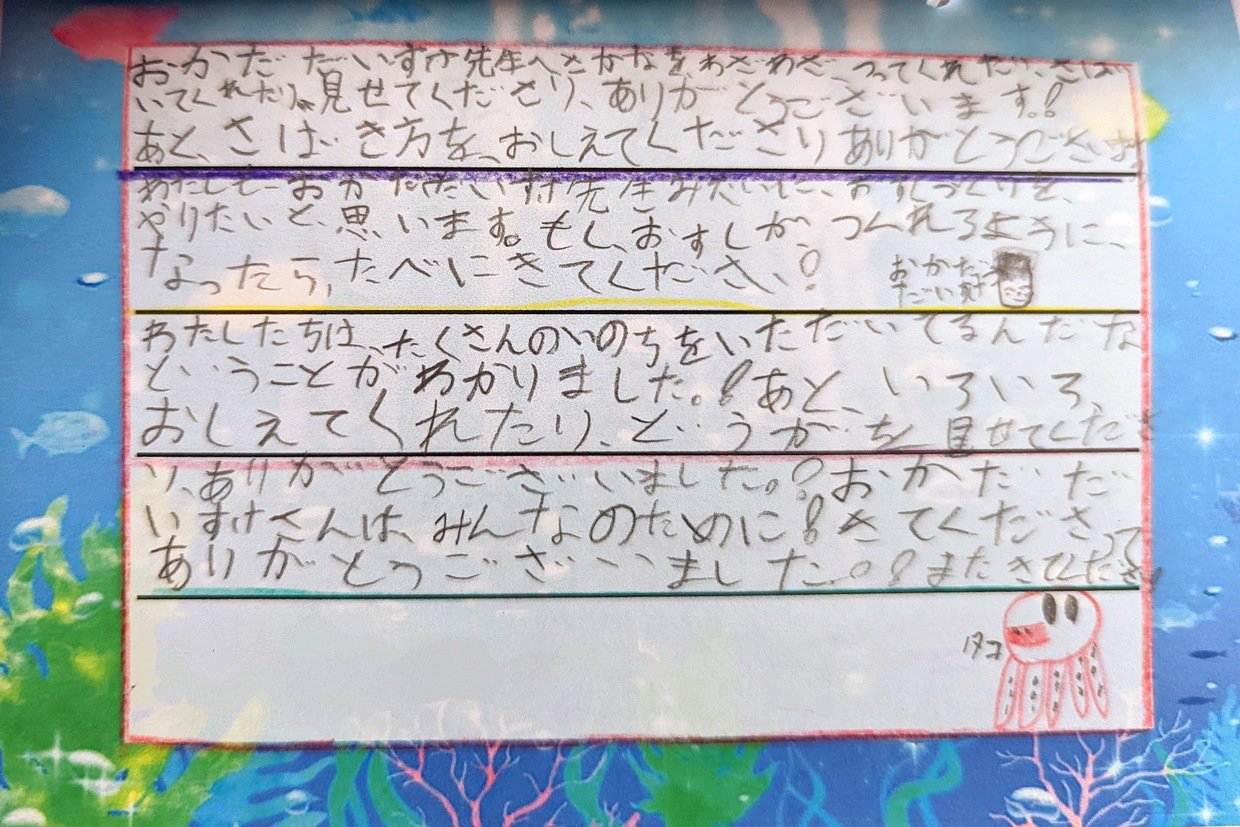 おかだ だいすけ先生へさかなをわざわざ、つってくれたり、さば
いてくれたり、見せてくださり、ありがとうございます。!
あと、さばき方を、おしえてくださりありがとうございます
わたしも、おかだだいすけ先生みたいに、おすしづくりを、
やりたいと、思います。もし、おすしが、つくれるように、
なったら、たべにきてください!
おかだ
だいすけ
わたしたちは、たくさんのいのちをいただいてるんだな
ということがわかりました。!あと、いろいろ、
おしえてくれたり、どうがを見せてくださ
り、ありがとうございました。!おかだ だ
いすけさんは、みんなのために!きてくださって
ありがとうございました。!またきてください
タコ